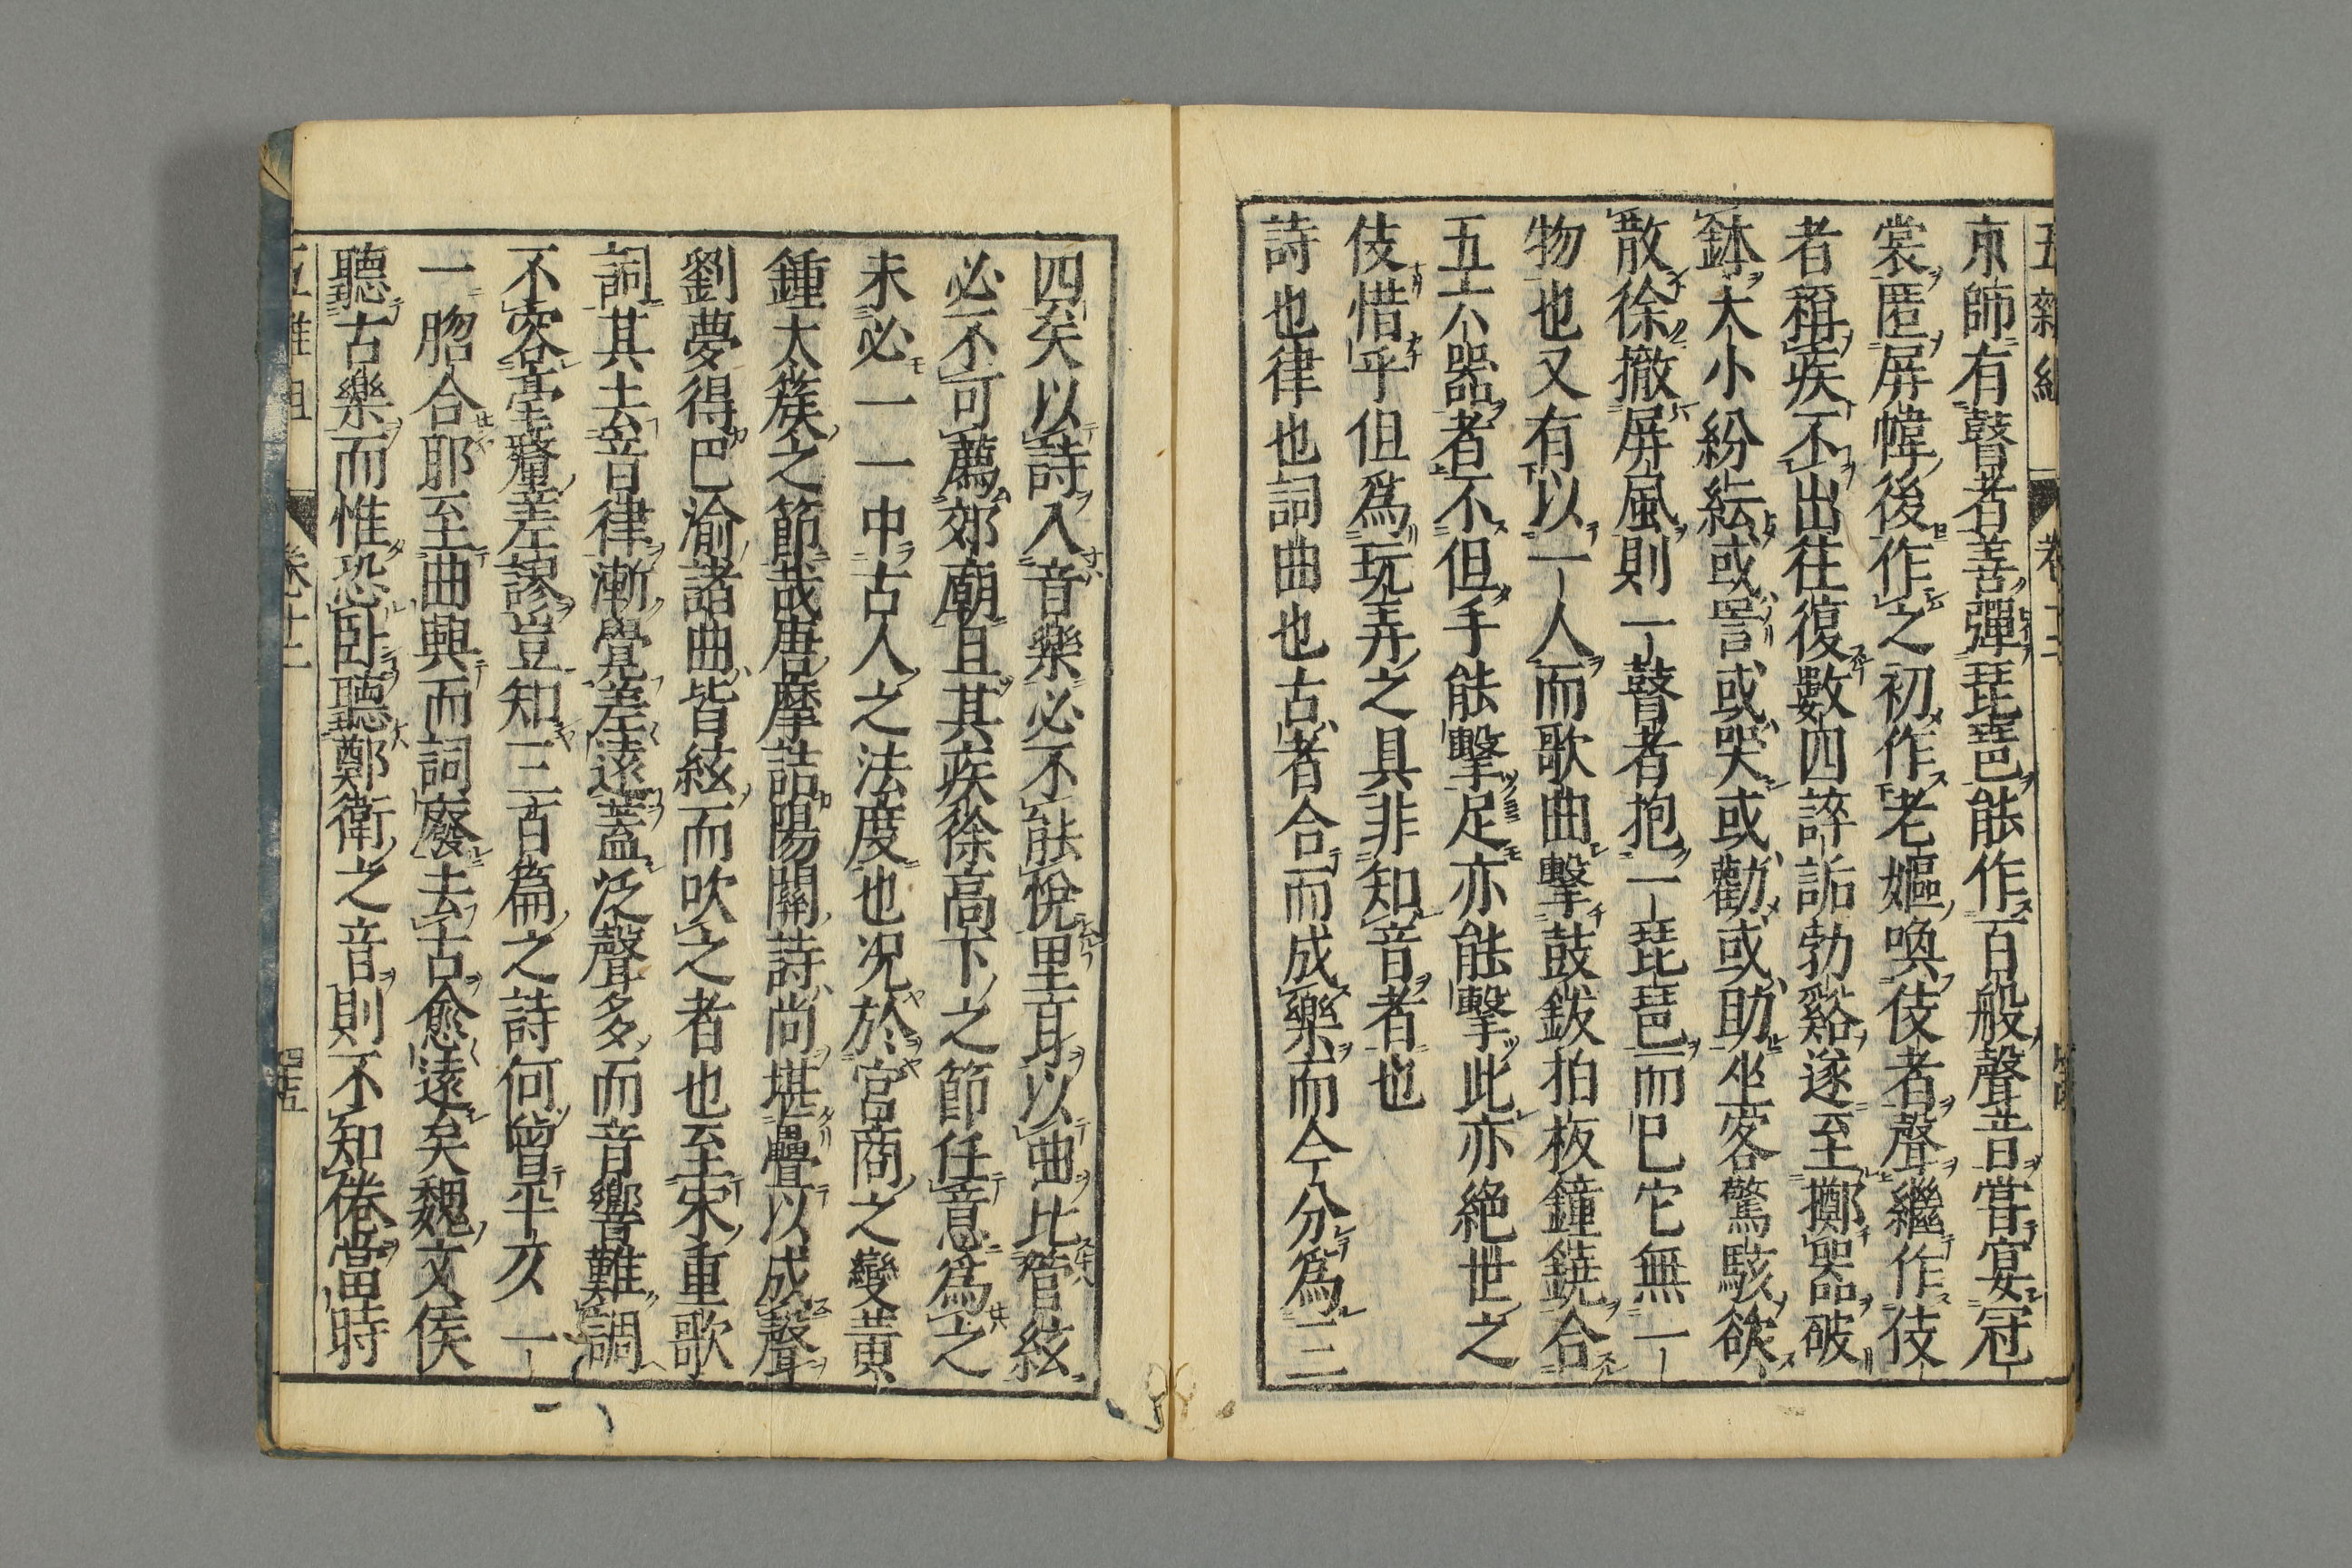 京師有瞽者善彈琵琶能作百般聲音嘗宴冠
裳匿屏幃後作之初作老嫗喚伎者聲繼作伎
者稱疾不出往復數四誶詬勃谿遂至擲器破
鉢大小紛紜或詈或哭或勸或助坐客驚駭欲
散徐撤屏風則一瞽者抱一琵琶而已它無一
物也又有以一人而歌曲擊鼓鈸拍板鐘鐃合
五六器者不但手能擊足亦能擊此亦絶世之
伎惜乎但爲玩弄之具非知音者也
詩也律也詞曲也古者合而成樂而今分爲三
四矣以詩入音樂必不能悅里耳以曲比管絃
必不可薦郊廟且其疾徐高下之節任意爲之
未必一一中古人之法度也况於宮商之變黄
鍾太簇之節哉唐摩詰陽關詩尚堪疊以成聲
劉夢得巴渝諸曲皆絃而吹之者也至宋重歌
詞其去音律漸覺差遠蓋泛聲多而音響難調
不容毫釐差謬豈知三百篇之詩何曾平亥一
一脗合耶至曲興而詞廢去古愈遠矣魏文侯
聽古樂而惟恐卧聽鄭衛之音則不知倦當時